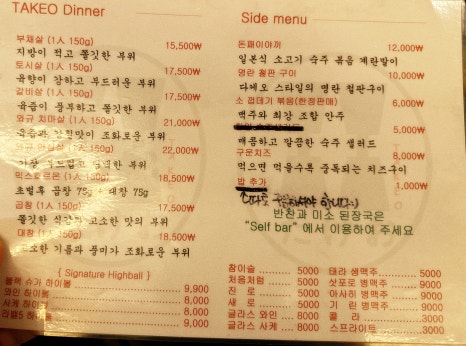 TAKEO Dinner
부채살 (1人 150g) 15,500₩
지방이 적고 쫄깃한 부위
토시살 (1人 150g) 17,500₩
육향이 강하고 부드러운 부위
갈비살 (1人 150g) 17,500₩
육즙이 풍부하고 쫄깃한 부위
와규 치마살 (1人 150g) 21,000₩
육즙과 조화로운 부위
와규 (1人 150g) 22,000₩
가장 부드럽고 담백한 부위
믹스호르몬 (1人 150g) 18,500₩
초벌후 곱창 75g 대창 75g
곱창 (1人 150g) 17,500₩
쫄깃한 식감과 고소한 맛의 부위
대창 (1人 150g) 18,500₩
고소한 기름과 풍미가 조화로운 부위
{ Signature Highball }
블랙 슈가 하이볼 9,900
와인 하이볼 9,000
사케 하이볼 9,000
라벨5 하이볼 8,000
Side menu
돈페이야끼 12,000₩
일본식 소고기 숙주 볶음 계란말이
명란 철판 구이 10,000₩
다케오 스타일의 명란 철판구이
소 껍데기 볶음(한정판매) 6,000₩
맥주와 최강 조합 안주
5,000₩
매콤하고 깔끔한 숙주 샐러드
구운치즈 8,000₩
먹으면 먹을수록 중독되는 치즈구이
밥 추가 1,000₩
반찬과 미소 된장국은
"Self bar" 에서 이용하여 주세요
참이슬 5000
처음처럼 5000
진로 5000
새로 5000
글라스 와인 8000
글라스 사케 8000
테라 생맥주 5000
삿포로 병맥주 9000
아사히 병맥주 9000
기린 병맥주 9000
콜라 3000
스프라이트 3000